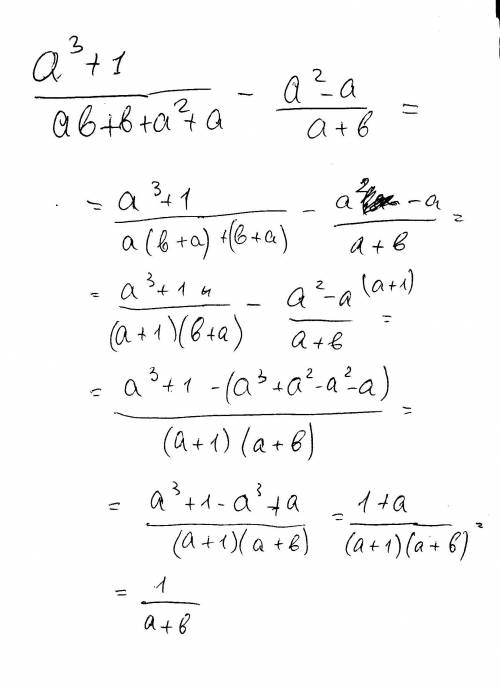 (a³+1)/(aв+в+a²+a) - (a²-a)/(a+в) =
= (a³+1)/(a(в+a)+(в+a)) - (a²-a)/(a+в) =
= (a³+1)/((a+1)(в+a)) - (a²-a)/(a+в) (a+1) =
= (a³+1-(a³+a²-a²-a))/((a+1)(a+в)) =
= (a³+1-a³+a)/((a+1)(a+в)) = (1+a)/((a+1)(a+в)) =
= 1/(a+в)